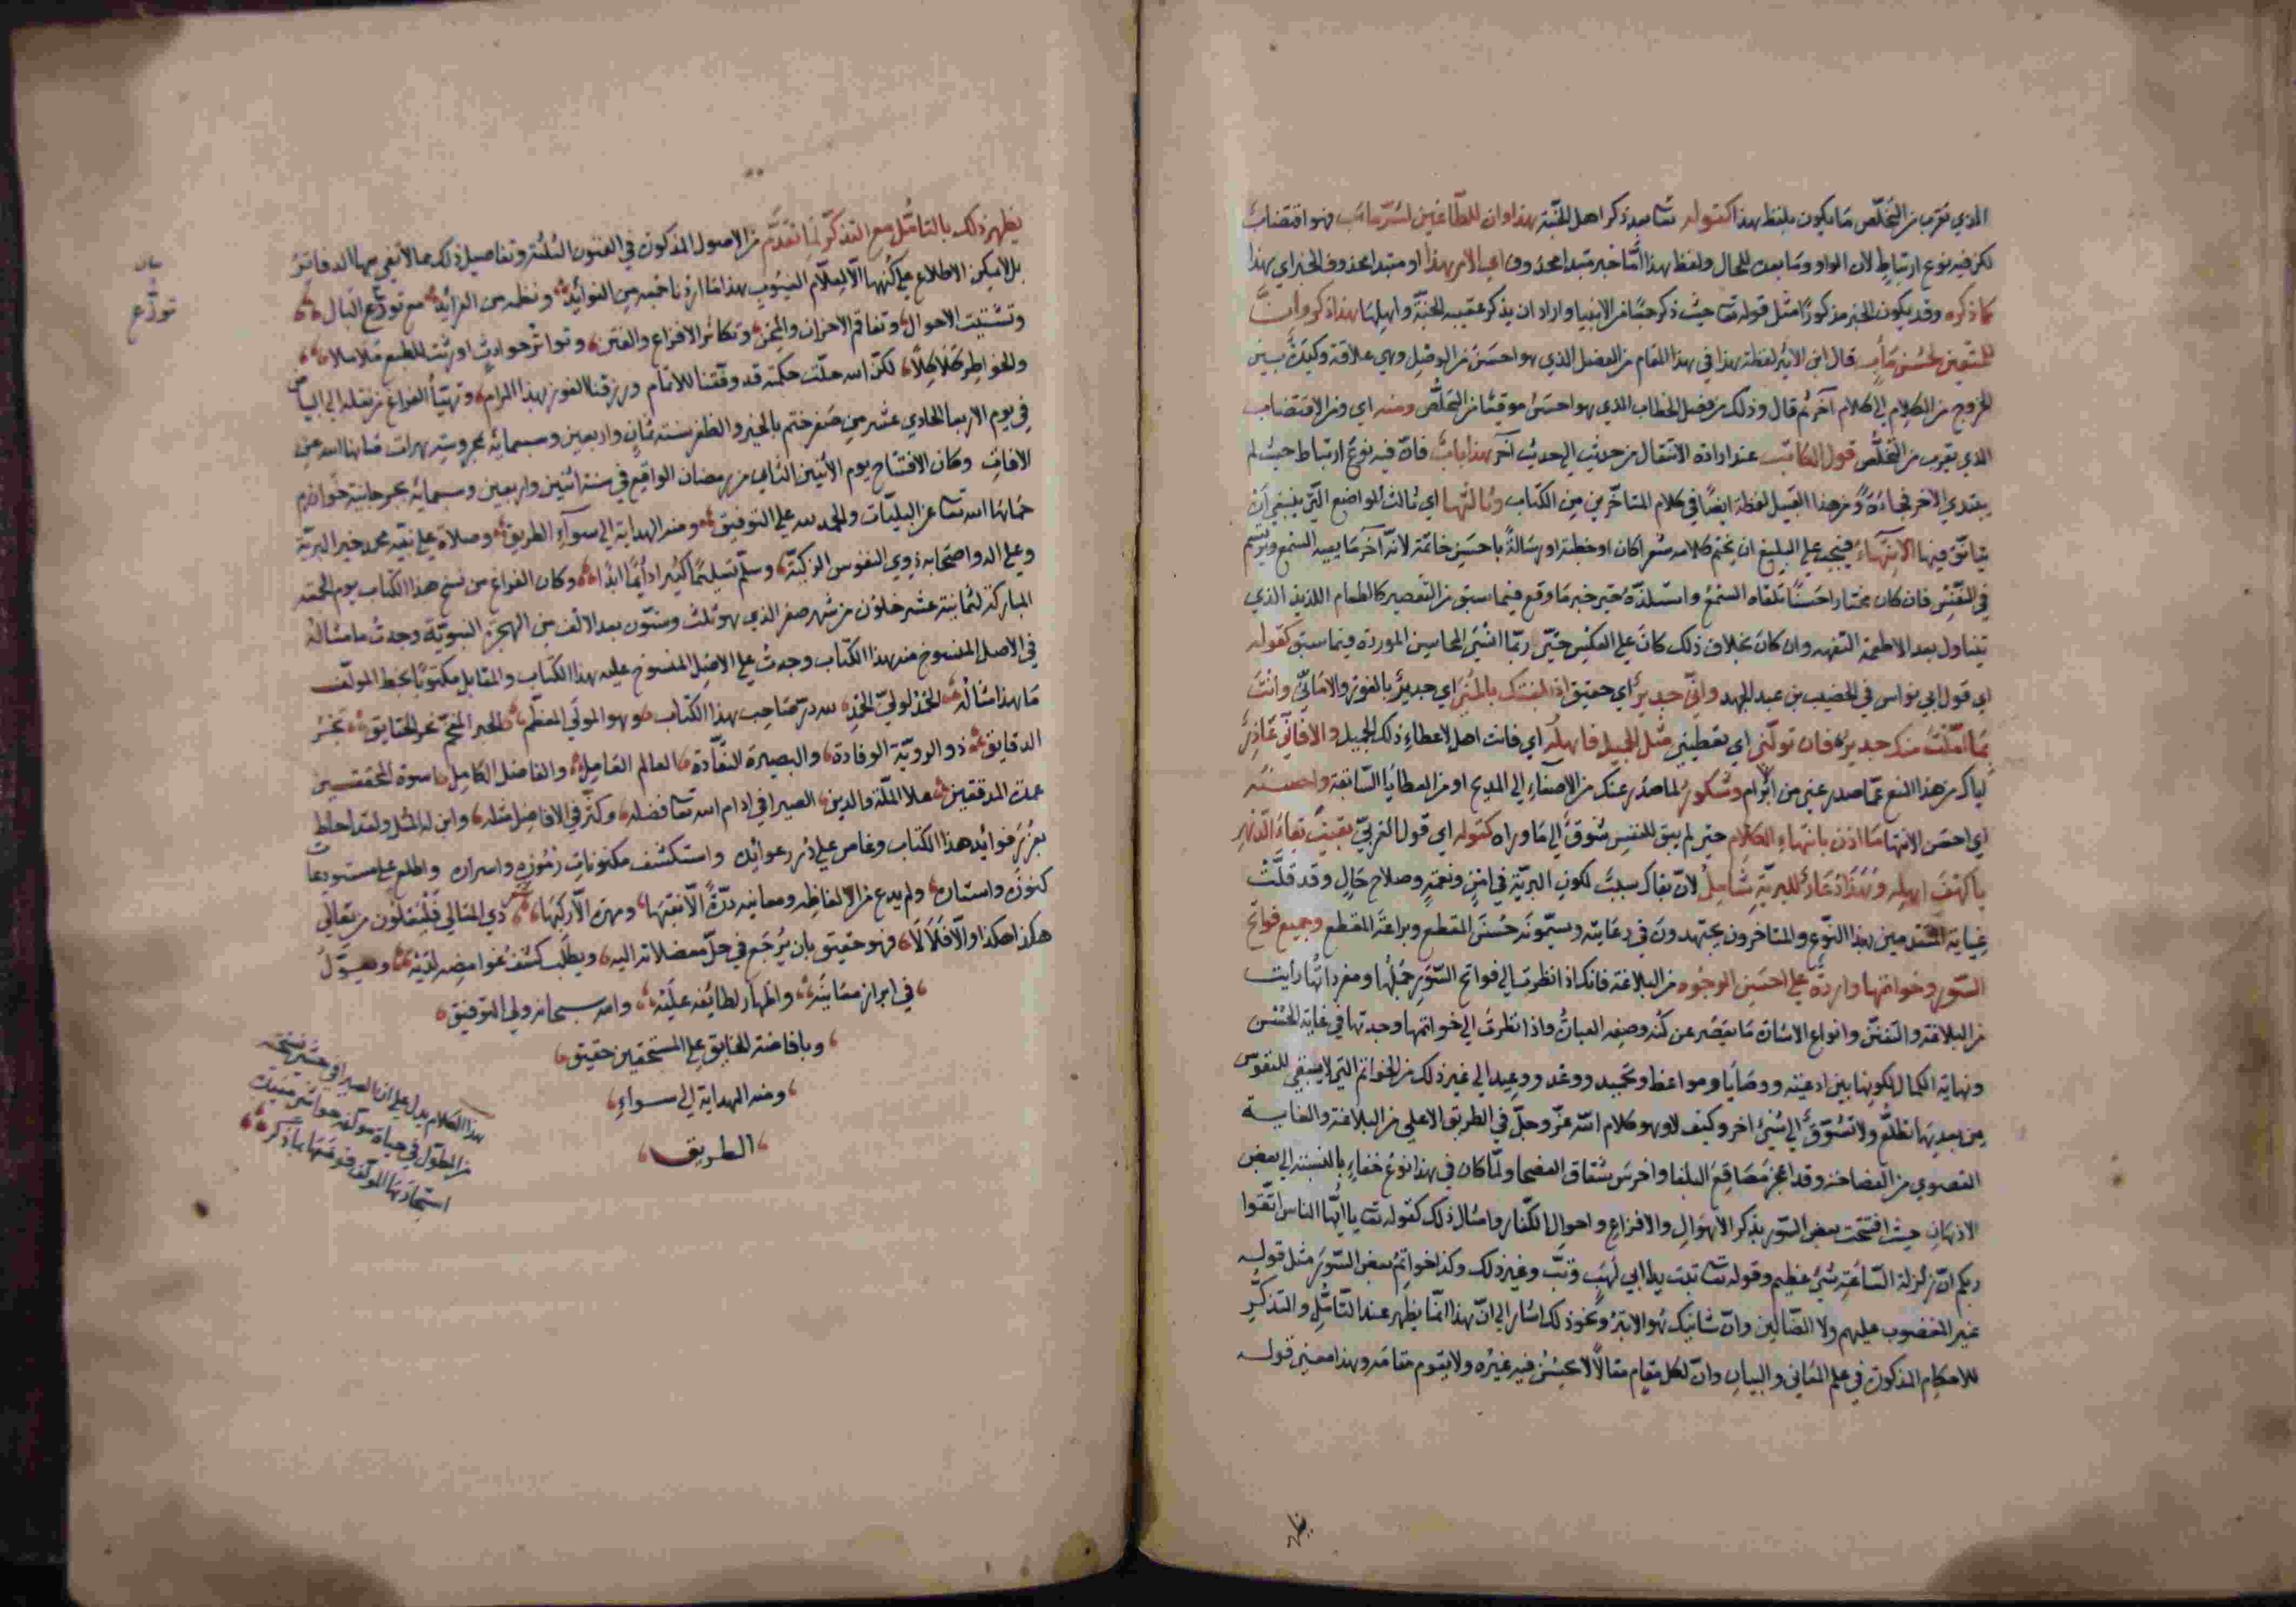 الذي يقرب من التخلص ما يكون بلفظ هذا كقوله تعا بعد ذكر اهل الجنة هذا وان للطاغين لشر ماب فهو اقتضاب
لكن فيه نوع ارتباط لان الواو وما بعده للحال ولفظ هذا اما خبر مبتدا محذوف اي الامر هذا او مبتدا محذوف الخبر اي هذا
كما ذكر وقد يكون الخبر مذكورا مثل قوله تعا حيث ذكر جمعا من الانبيا واراد ان يذكر عقيبه الجنة واهلها هذا ذكر وان
للمتقين لحسن مآب قال ابن الاثير لفظة هذا في هذا المقام من الفصل الذي هو احسن من الوصل وهي علاقة وكيدة بين
الخروج من الكلام الى كلام آخر ثم قال وذلك من فصل الخطاب الذي هو احسن موقعا من التخلص ومنه اي ومن الاقتضاب
الذي يقرب من التخلص قول الكاتب عند ارادة الانتقال من حديث الى حديث آخر هذا باب فان فيه نوع ارتباط حيث لم
يبتدي الاخر فجاءة ومن هذا القبيل لفظة ايضا في كلام المتاخرين من الكتاب وثالثها اي ثالث المواضع التي ينبغي ان
يتانق فيها الانتهاء فيجب على البليغ ان يختم كلامه شعرا كان او خطبة او رسالة باحسن خاتمة لانه آخر ما يعيه السمع ويرتسم
في النفس فان كان مختارا حسنا تلقاه السمع واستلذه حتى جبر ما وقع فيما سبق من التقصير كالطعام اللذيذ الذي
يتناول بعد الاطعمة التفهه وان كان بخلاف ذلك كان على العكس حتى ربما انسى المحاسن الموردة فيما سبق كقوله
اي قول ابي نواس في الخصيب بن عبد الحميد واني جدير اي حقيق اذ بلغتك بالمنى اي جدير بالفوز والاماني وانت
بما املت منك جدير فان تولني اي تعطيني مثل الجميل فاهله اي فانت اهل لاعطاء ذلك الجميل والا فاني عاذر
اياك من هذا المنع عما صدر عني من ابرام وشكور لما صدر عنك من الاصغاء الى المديح او من العطايا السابقة واحسنه
اي احسن الانتها ما اذن بانتهاء الكلام حتى لم يبق للنفس تشوق الى ما وراه كقوله اي قول المعري بقيت بقاء الدهر
يا كهف اهله وهذا دعاء للبرية شامل لان بقاك سبب لكون البرية في امن ونعمة وصلاح حال وقد قلت
عناية المتقدمين بهذا النوع والمتاخرون يجتهدون في رعايته ويسمونه حسن المقطع وبراعة المقطع وجميع فواتح
السور وخواتمها واردة على احسن الوجوه من البلاغة فانك اذا نظرت الى فواتح السور جملها ومفرداتها رأيت
من البلاغة والتفنن وانواع الاشارة ما يقصر عن كنه وصفه العبارة واذا نظرت الى خواتمها وجدتها في غاية الحسن
ونهاية الكمال لكونها بين ادعية ووصايا ومواعظ وتحميد ووعد ووعيد الى غير ذلك من الخواتم التي لا يبقى للنفوس
من بعديها تطلع ولا تشوق الى شيء اخر وكيف لا وهو كلام الله عز وجل في الطريق الاعلى من البلاغة والغاية
القصوى من الفصاحة وقد اعجز مصاقع البلغا واخرس شقاق الفصحا ولما كان في هذا نوع خفاء بالنسبة الى بعض
الاذهان حيث افتتحت بعض السور بذكر الاهوال والافزاع واحوال الكفار وامثال ذلك كقوله تعا يا ايها الناس اتقوا
ربكم ان زلزلة الساعة شيء عظيم وقوله تعا تبت يدا ابي لهب وتب وغير ذلك وكذا خواتم بعض السور مثل قوله
غير المغضوب عليهم ولا الضالين وان شانئك هو الابتر ونحو ذلك اشار الى ان هذا انما يظهر عند التامل والتذكر
للاحكام المذكورة في علم المعاني والبيان وان لكل مقام مقالا لا يحسن فيه غيره ولا يقوم مقامه وهذا معنى قوله
يظهر ذلك بالتامل مع التذكر لما تقدم من الاصول المذكورة في الفنون الثلثة وتفاصيل ذلك مما لا يفي بها الدفاتر
بل لا يمكن الاطلاع على كنهها الا لعلام الغيوب هذا ما اردنا جمعه من الفوائد ونظمه من الفرائد مع توزع البال
وتشتت الاحوال وتفاقم الاحزان والمحن وتكاثر الافزاع والفتن وتواتر حوادث اورثت للطبع ملالا
وللخواطر كلالا لكن الله جلت حكمته قد وفقنا للاتمام ورزقنا الفوز بهذا المرام وتهيأ الفراغ من نقله الى البياض
في يوم الاربعا الحادي عشر من صفر ختم بالخير والظفر سنة ثمان واربعين وسبعمائة بمحروسة هرات صانها الله عن
الافات وكان الافتتاح يوم الاثنين الثاني من رمضان الواقع في سنة اثنين واربعين وسبعمائة بجرجانية خوارزم
حماها الله تعا عن البليات والحمد لله على التوفيق ومنه الهداية الى سواء الطريق وصلاة على نبيه محمد خير البرية
وعلى اله واصحابه ذوي النفوس الزكية وسلم تسليما كثيرا دائما ابدا وكان الفراغ من نسخ هذا الكتاب يوم الجمعة
المباركة لثمانية عشر خلون من شهر صفر الذي هو ثلث وستون بعد الالف من الهجرة النبوية وجدت ما مثاله
في الاصل المنسوخ منه هذا الكتاب وجدت على الاصل المنسوخ عليه هذا الكتاب والمقابل مكتوبا بخط المولف
ما هذا مثاله الحمد لولي الحمد لله در صاحب هذا الكتاب وهو المولى المعظم الحبر المفخم نحر الحقايق بحر
الدقايق ذو الروية الوقادة والبصيرة النقادة العالم العامل والفاضل الكامل اسوة المحققين
عمدة المدققين علا الملة والدين الصيرافي ادام الله تعا فضله وكثر في الافاضل مثله واين له المثل ولقد احاط
بغرر فوائد هذا الكتاب وغاص على درر عوائده واستكشف مكنونات رموزه واسراره واطلع على مستودعات
كنوزه واستاره ولم يدع من الفاظه ومعانيه درة الا ثقبها ومهرة الا ركبها ذي المعالي فليعلون من تعالى
هكذا هكذا والا فلا لا فهو حقيق بان يرجع في حل معضلاته اليه ويطلب كشف غوامضه لديه ويعول
في ابراز معانيه واظهار لطائفه عليه والله سبحانه ولي التوفيق
وبافاضة الحقايق على المستحقين حقيق
ومنه الهداية الى سواء
الطريق
بيان
توزع
هذا الكلام يدل على ان الصيرافي حشى نسخته
من المطول في حياة مولفه حواشي
استجادها المولف فوصفها بما ذكر